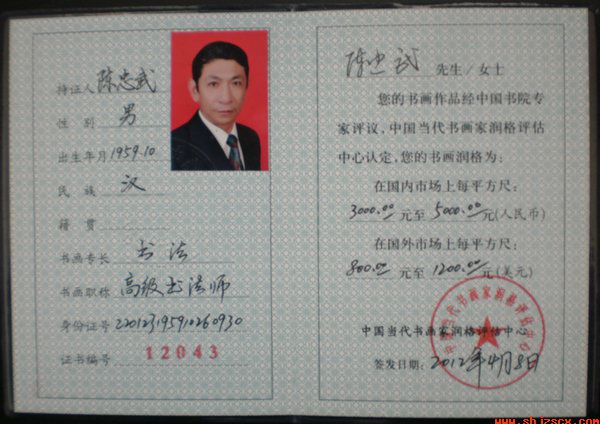 持证人 陈忠武
性 别 男
出生年月 1959.10
民 族 汉
籍 贯
书画专长 书法
书画职称 高级书法师
身份证号 220123195910260930
证书编号 12043
陈忠武 先生/女士
您的书画作品经中国书院专
家评议,中国当代书画家润格评估
中心认定,您的书画润格为:
在国内市场上每平方尺:
3000.00元至5000.00元(人民币)
在国外市场上每平方尺:
800.00元至1200.00元(美元)
中国当代书画家润格评估中心
签发日期:2012年4月8日
中国当代书画家润格评估中心
www.shjzscx.com